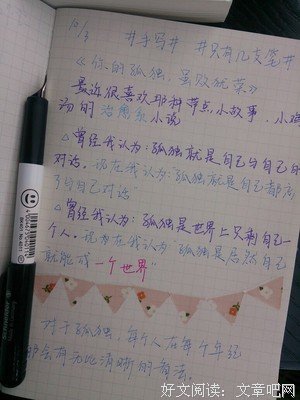 10/3 #手写# #只有几支笔#
《你的孤独，虽败犹荣》
最近很喜欢那种节点小故事，小鸡
汤的治愈系小说
△曾经我认为：孤独就是自己与自己的
对话。现在我认为：孤独就是自己都忘
了与自己对话
△曾经我认为：孤独是世界上只剩自己一
个人。现在我认为：孤独是居然自己
就能成一个世界
对于孤独，每个人在每个年纪
都会有如此清晰的看法.
好文阅读：文章吧网